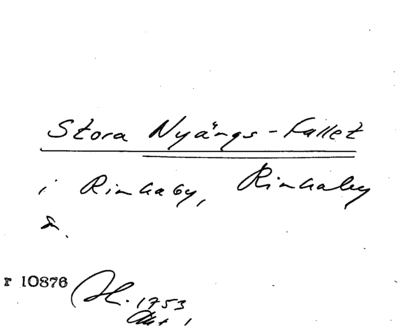 Stora Nyängs-fallet
i Rinkaby, Rinkaby
r 10876 H. 1753
Akt 1